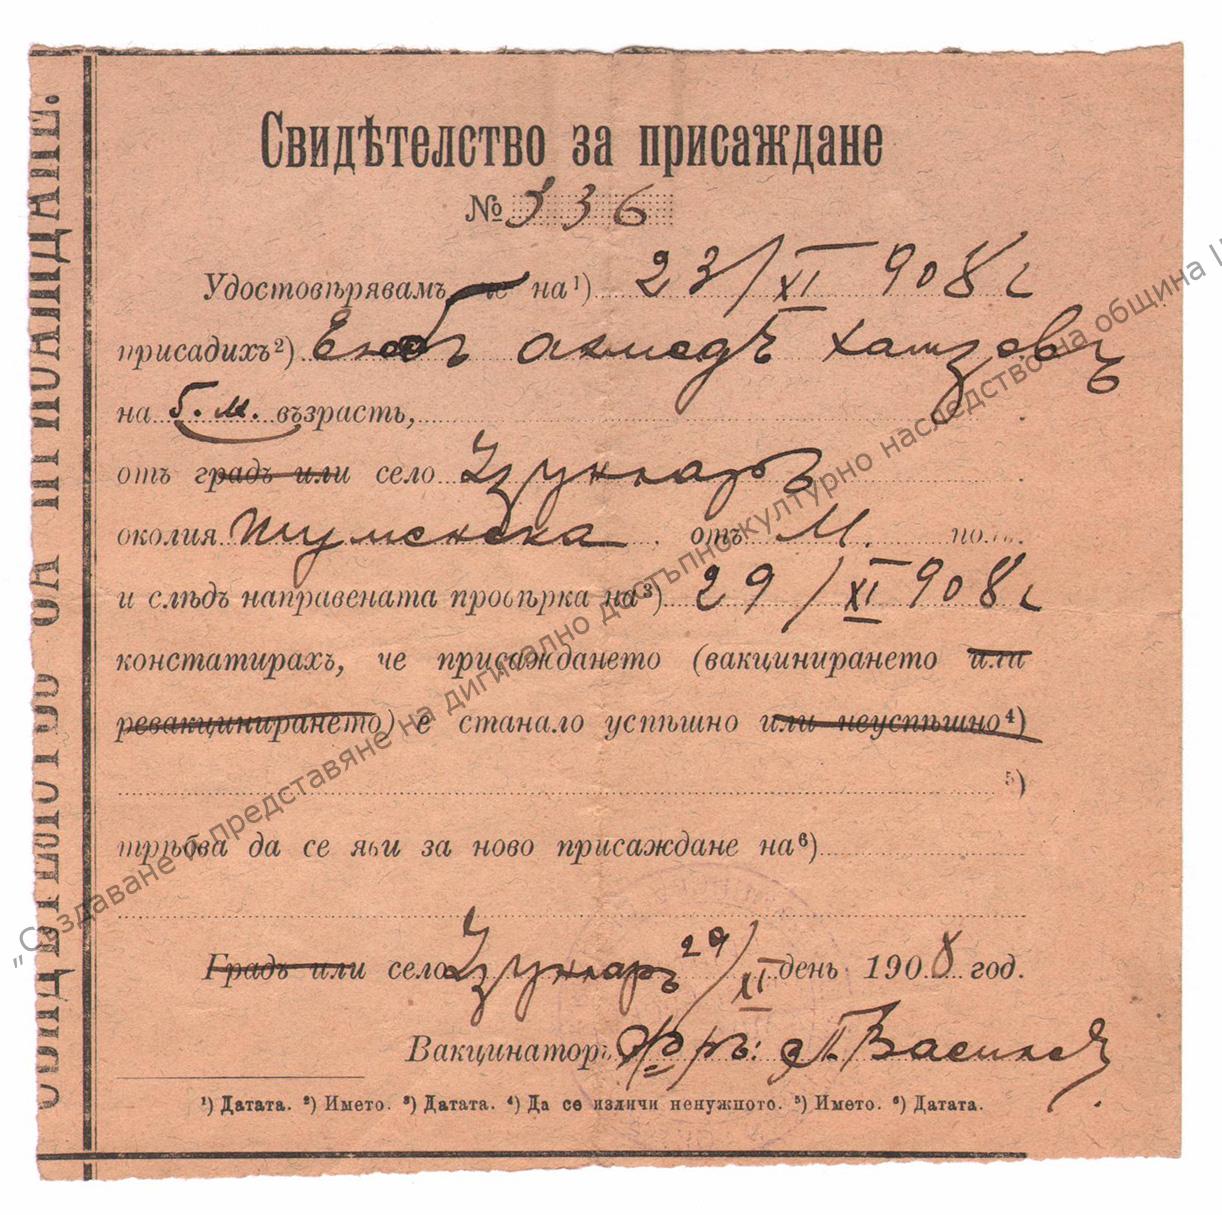 СВИДѢТЕЛСТВО ЗА ПРИСАЖДАНЕ.
Свидѣтелство за присаждане
№ 336
Удостовѣрявамъ че на ¹) 23/XI 908 г
присадихъ ²) Еюбъ Ахмедъ Хамзовъ
на 5. м. възрасть,
отъ градъ или село Узунларъ
околия Шуменска отъ М. по
и слѣдъ направената провѣрка на ³) 29/XI 908 г
констатирахъ, че присаждането (вакцинирането или
ревакцинирането) е станало успѣшно или неуспѣшно ⁴)
⁵)
трѣбва да се яви за ново присаждане на ⁶)
Градъ или село Узунларъ 29/XI день 1908 год.
Вакцинаторъ Ф-ръ: П. Василев
¹) Датата. ²) Името. ³) Датата. ⁴) Да се изличи ненужното. ⁵) Името. ⁶) Датата.
„Създаване и представяне на дигитално достъпно културно наследство на община